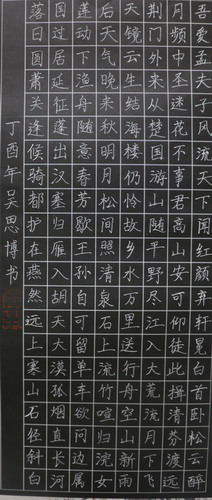 吾爱孟夫子风流天下闻红颜弃轩冕白首卧松云醉
月频中圣迷花不事君高山安可仰徒此揖清芬渡远
荆门外来从楚国游山随平野尽江入大荒流月下飞
天镜云生结海楼仍怜故乡水万里送行舟空山新雨
后天气晚来秋明月松间照清泉石上流竹喧归浣女
莲动下渔舟随意春芳歇王孙自可留单车欲问边属
国过居延征蓬出汉塞归雁入胡天大漠孤烟直长河
落日圆萧关逢候骑都护在燕然远上寒山石径斜白
丁酉年吴思博书